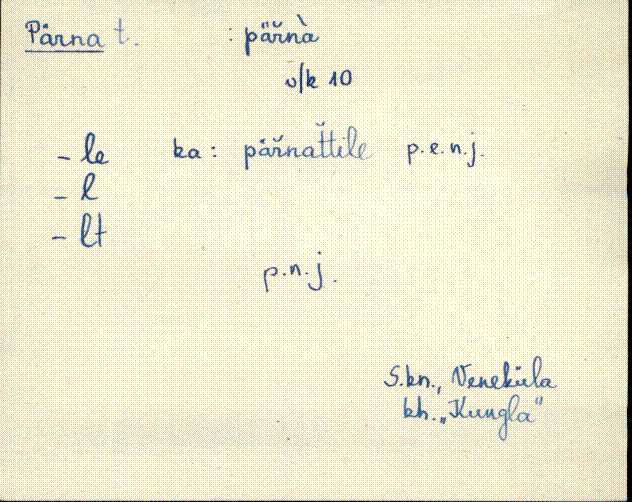 Pärna t. : pärnà
v/k 10
- le ka: pärnattile p.e.n.j.
- l
- lt
p.n.j.
S.kn., Veneküla
kh. „Kungla"